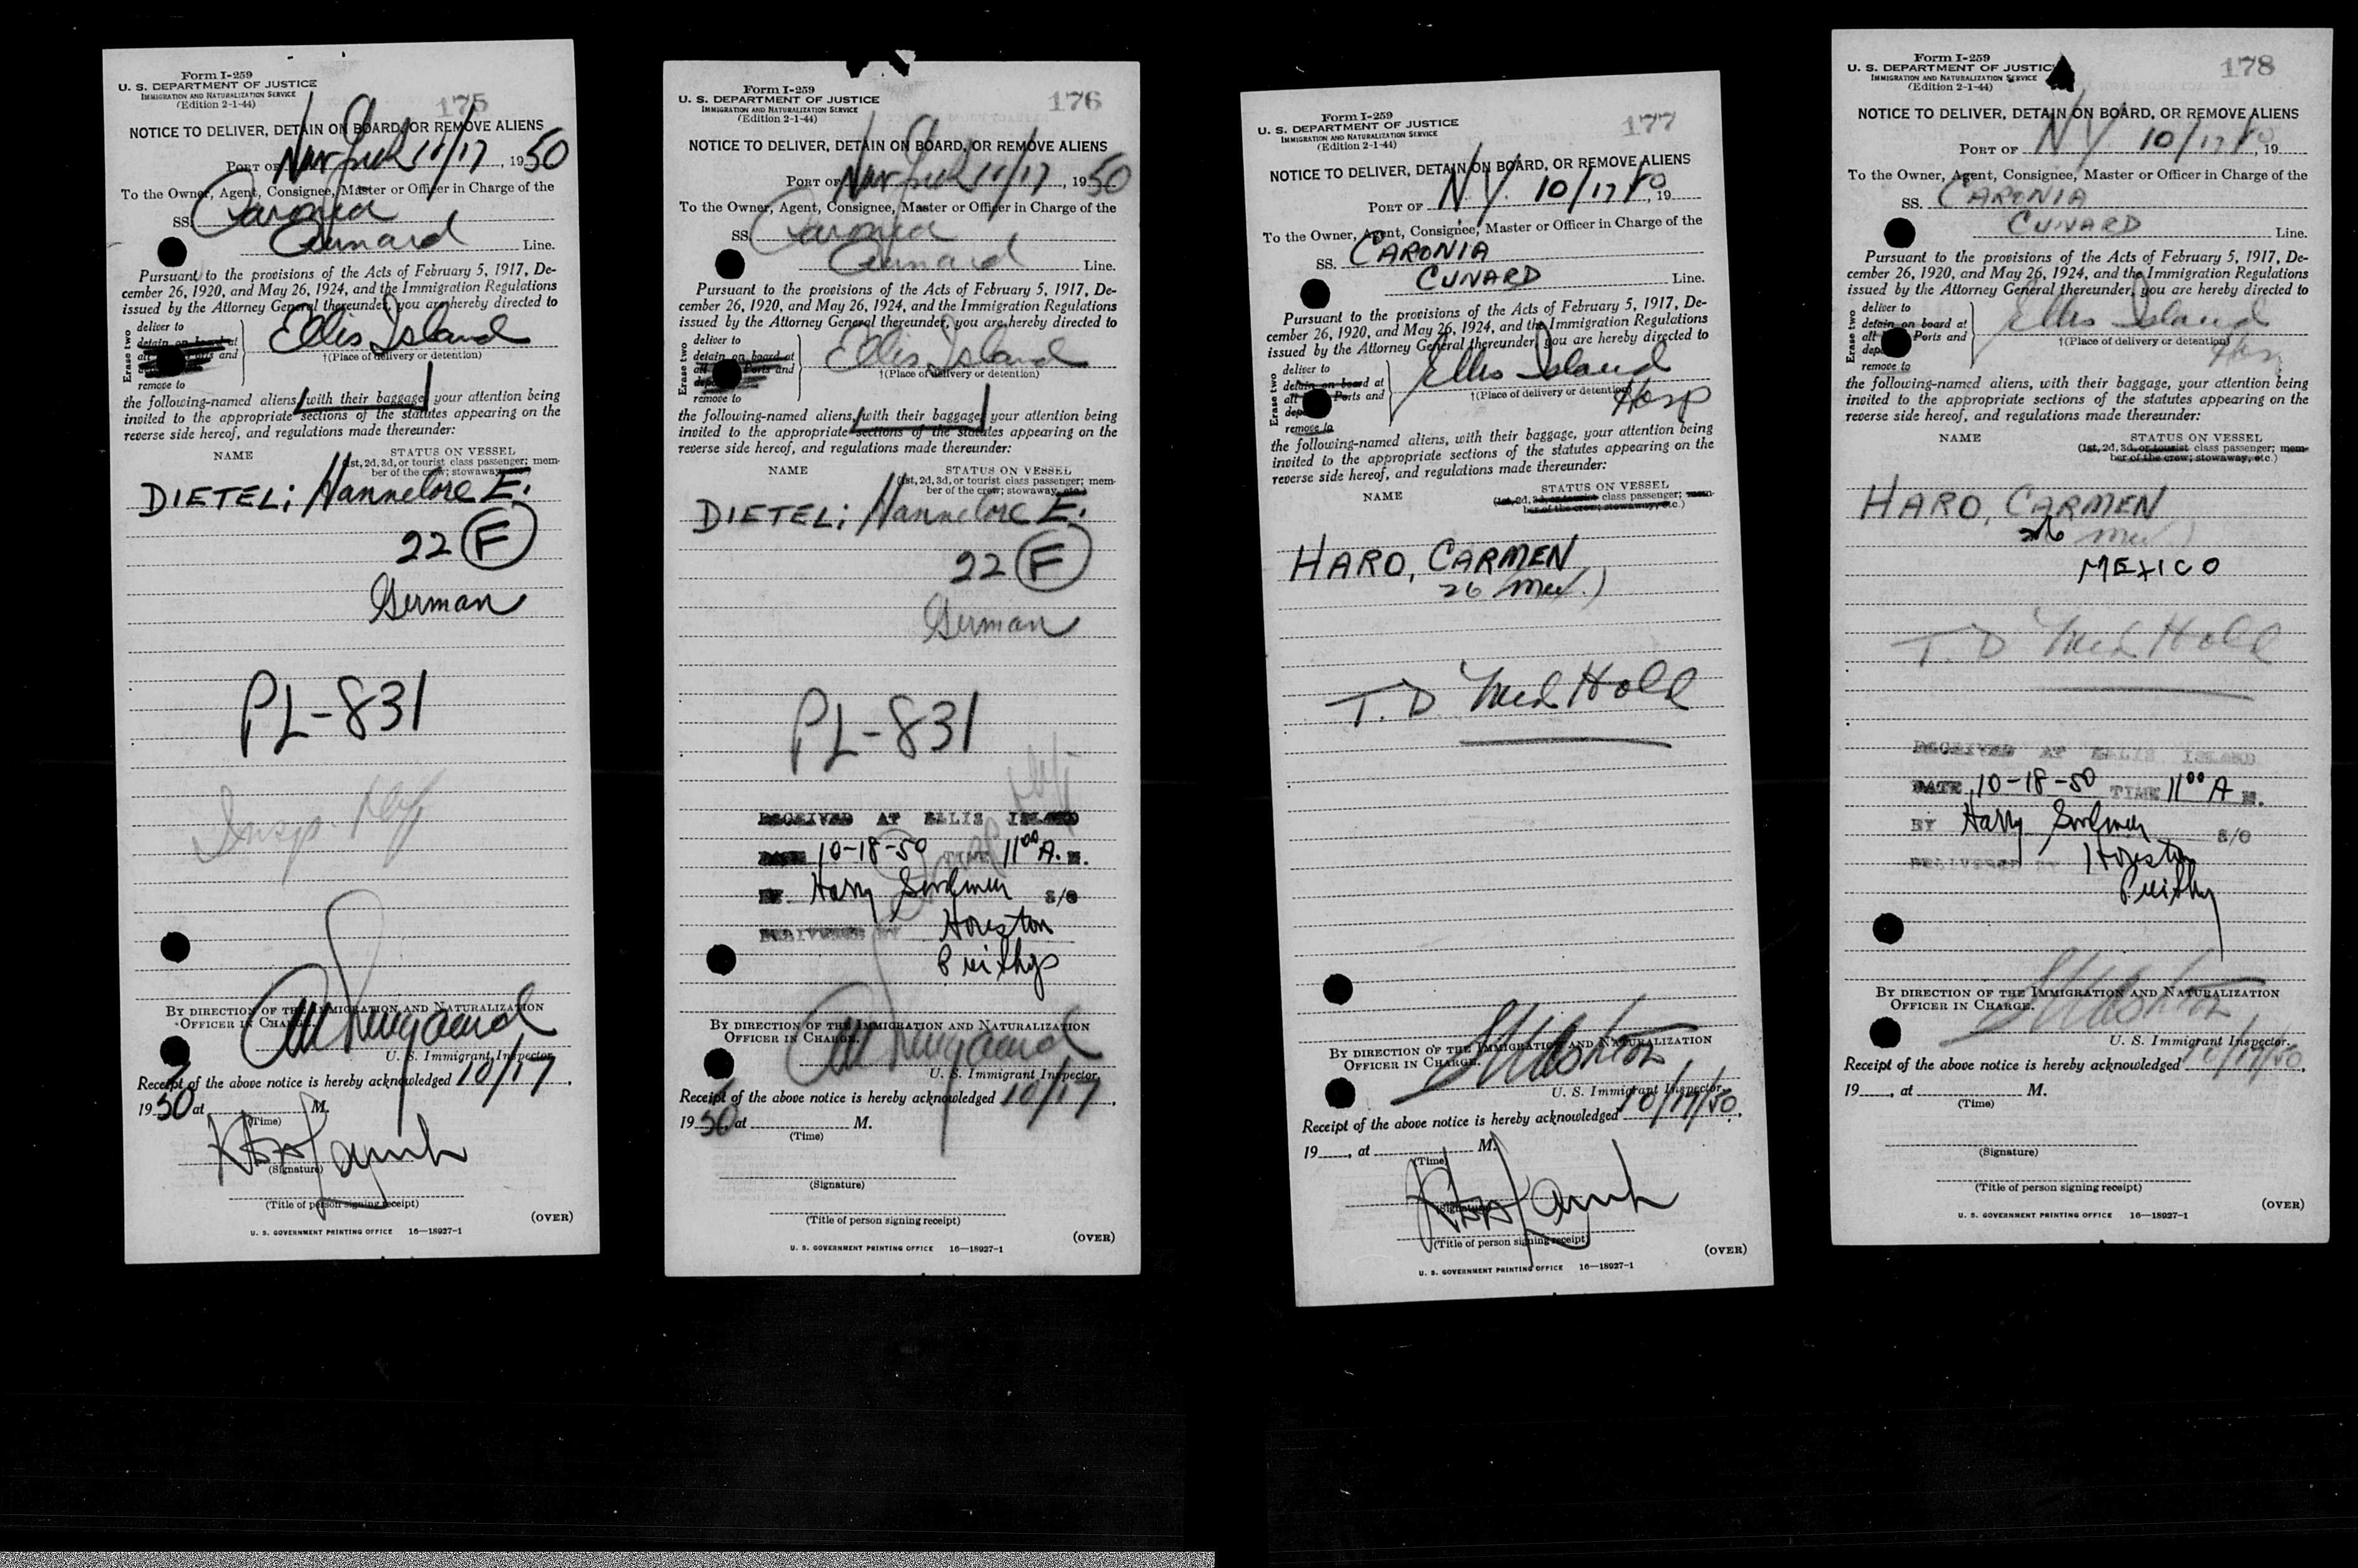 Form I-259
U. S. DEPARTMENT OF JUSTICE
IMMIGRATION AND NATURALIZATION SERVICE
(Edition 2-1-44)
175
NOTICE TO DELIVER, DETAIN ON BOARD, OR REMOVE ALIENS
PORT OF New York 11/17, 1950
To the Owner, Agent, Consignee, Master or Officer in Charge of the
SS. Caronia
Cunard Line.
Pursuant to the provisions of the Acts of February 5, 1917, De-
cember 26, 1920, and May 26, 1924, and the Immigration Regulations
issued by the Attorney General thereunder, you are hereby directed to
Erase two
deliver to
detain on board at
all Ports and
remove to
Ellis Island
†(Place of delivery or detention)
the following-named aliens, with their baggage, your attention being
invited to the appropriate sections of the statutes appearing on the
reverse side hereof, and regulations made thereunder:
NAME
STATUS ON VESSEL
(1st, 2d, 3d, or tourist class passenger; mem-
ber of the crew; stowaway, etc.)
DIETEL; Hannelore E.
22 F
German
PL-831
Insp.
BY DIRECTION OF THE IMMIGRATION AND NATURALIZATION
OFFICER IN CHARGE.
U. S. Immigrant Inspector.
Receipt of the above notice is hereby acknowledged 10/17,
1950 at M.
(Time)
(Signature)
(Title of person signing receipt)
(OVER)
U. S. GOVERNMENT PRINTING OFFICE 16—18927-1
Form I-259
U. S. DEPARTMENT OF JUSTICE
IMMIGRATION AND NATURALIZATION SERVICE
(Edition 2-1-44)
176
NOTICE TO DELIVER, DETAIN ON BOARD, OR REMOVE ALIENS
PORT OF New York 11/17, 1950
To the Owner, Agent, Consignee, Master or Officer in Charge of the
SS. Caronia
Cunard Line.
Pursuant to the provisions of the Acts of February 5, 1917, De-
cember 26, 1920, and May 26, 1924, and the Immigration Regulations
issued by the Attorney General thereunder, you are hereby directed to
Erase two
deliver to
detain on board at
all Ports and
remove to
Ellis Island
†(Place of delivery or detention)
the following-named aliens, with their baggage, your attention being
invited to the appropriate sections of the statutes appearing on the
reverse side hereof, and regulations made thereunder:
NAME
STATUS ON VESSEL
(1st, 2d, 3d, or tourist class passenger; mem-
ber of the crew; stowaway, etc.)
DIETEL; Hannelore E.
22 F
German
PL-831
RECEIVED AT ELLIS ISLAND
DATE 10-18-50 TIME 11 00 A. M.
BY Harry S/O
DELIVERED BY Houston
BY DIRECTION OF THE IMMIGRATION AND NATURALIZATION
OFFICER IN CHARGE.
U. S. Immigrant Inspector.
Receipt of the above notice is hereby acknowledged 10/17,
1950, at M.
(Time)
(Signature)
(Title of person signing receipt)
(OVER)
U. S. GOVERNMENT PRINTING OFFICE 16—18927-1
Form I-259
U. S. DEPARTMENT OF JUSTICE
IMMIGRATION AND NATURALIZATION SERVICE
(Edition 2-1-44)
177
NOTICE TO DELIVER, DETAIN ON BOARD, OR REMOVE ALIENS
PORT OF N.Y. 10/17 50, 19
To the Owner, Agent, Consignee, Master or Officer in Charge of the
SS. CARONIA
CUNARD Line.
Pursuant to the provisions of the Acts of February 5, 1917, De-
cember 26, 1920, and May 26, 1924, and the Immigration Regulations
issued by the Attorney General thereunder, you are hereby directed to
Erase two
deliver to
detain on board at
all Ports and
remove to
Ellis Island
†(Place of delivery or detention)
Hosp
the following-named aliens, with their baggage, your attention being
invited to the appropriate sections of the statutes appearing on the
reverse side hereof, and regulations made thereunder:
NAME
STATUS ON VESSEL
(1st, 2d, 3d, or tourist class passenger; mem-
ber of the crew; stowaway, etc.)
HARO, CARMEN
26 Mex.)
T. D. Med Hold
BY DIRECTION OF THE IMMIGRATION AND NATURALIZATION
OFFICER IN CHARGE.
U. S. Immigrant Inspector.
Receipt of the above notice is hereby acknowledged 10/17/50,
19, at M.
(Time)
(Signature)
(Title of person signing receipt)
(OVER)
U. S. GOVERNMENT PRINTING OFFICE 16—18927-1
Form I-259
U. S. DEPARTMENT OF JUSTICE
IMMIGRATION AND NATURALIZATION SERVICE
(Edition 2-1-44)
178
NOTICE TO DELIVER, DETAIN ON BOARD, OR REMOVE ALIENS
PORT OF N.Y. 10/17 50, 19
To the Owner, Agent, Consignee, Master or Officer in Charge of the
SS. CARONIA
CUNARD Line.
Pursuant to the provisions of the Acts of February 5, 1917, De-
cember 26, 1920, and May 26, 1924, and the Immigration Regulations
issued by the Attorney General thereunder, you are hereby directed to
Erase two
deliver to
detain on board at
all Ports and
remove to
Ellis Island
†(Place of delivery or detention)
Hosp
the following-named aliens, with their baggage, your attention being
invited to the appropriate sections of the statutes appearing on the
reverse side hereof, and regulations made thereunder:
NAME
STATUS ON VESSEL
(1st, 2d, 3d, or tourist class passenger; mem-
ber of the crew; stowaway, etc.)
HARO, CARMEN
26 Mex.)
MEXICO
T. D Med Hold
RECEIVED AT ELLIS ISLAND
DATE 10-18-50 TIME 11 00 A M.
BY Harry S/O
DELIVERED BY Houston
BY DIRECTION OF THE IMMIGRATION AND NATURALIZATION
OFFICER IN CHARGE.
U. S. Immigrant Inspector.
Receipt of the above notice is hereby acknowledged 10/17/50,
19, at M.
(Time)
(Signature)
(Title of person signing receipt)
(OVER)
U. S. GOVERNMENT PRINTING OFFICE 16—18927-1